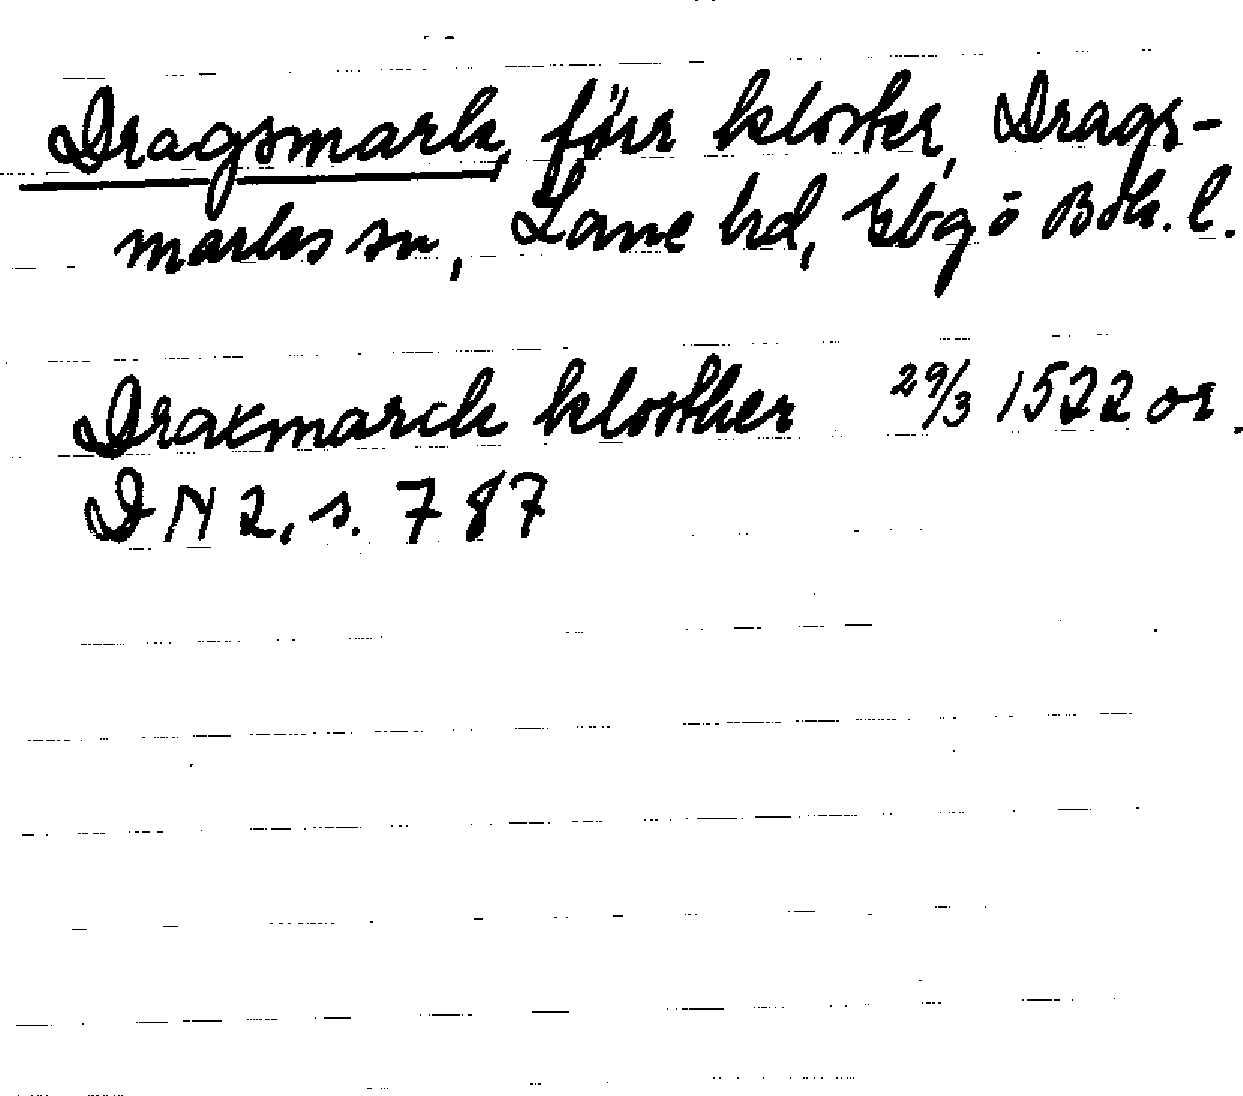 Dragsmark, förr kloster, Drags-
marks sn, Lane hd, Gbg o Boh. l.
Draxmarck klosther 29/3 1522 or.
DN 2, s. 787